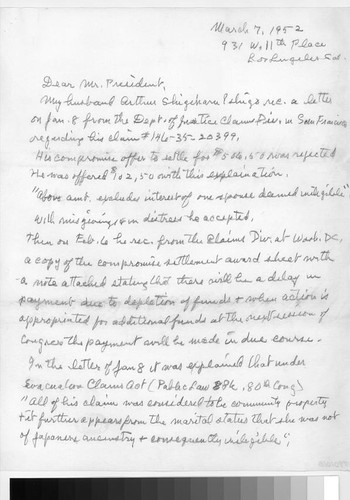 March 7, 1952
931 W. 11th Place
Los Angeles Cal.
Dear Mr. President,
My husband Arthur Shigeharu Ishigo rec. a letter
on Jan. 8 from the Dept. of Justice Claims Div. in San Francisco
regarding his claim #146-35-20399.
His compromise offer to settle for was rejected
He was offered $102.50 with this explaination.
"Above amt. excludes interest of one spouse deemed ineligible"
With misgivings & in distress he accepted.
Then on Feb. 6 he rec. from the Claims Div. at Wash. D.C.
a copy of the compromise settlement award sheet with
a note attached stating that there will be a delay in
payment due to depletion of funds & when action is
appropriated for additional funds at the next session of
Congress the payment will be made in due course.
In the letter of Jan 8 it was explained that under
Evacuation Claims Act (Public Law 886, 80th Cong)
"All of his claim was considered to be community property
& it further appears from the marital status that she was not
of Japanese ancestry & consequently ineligible";